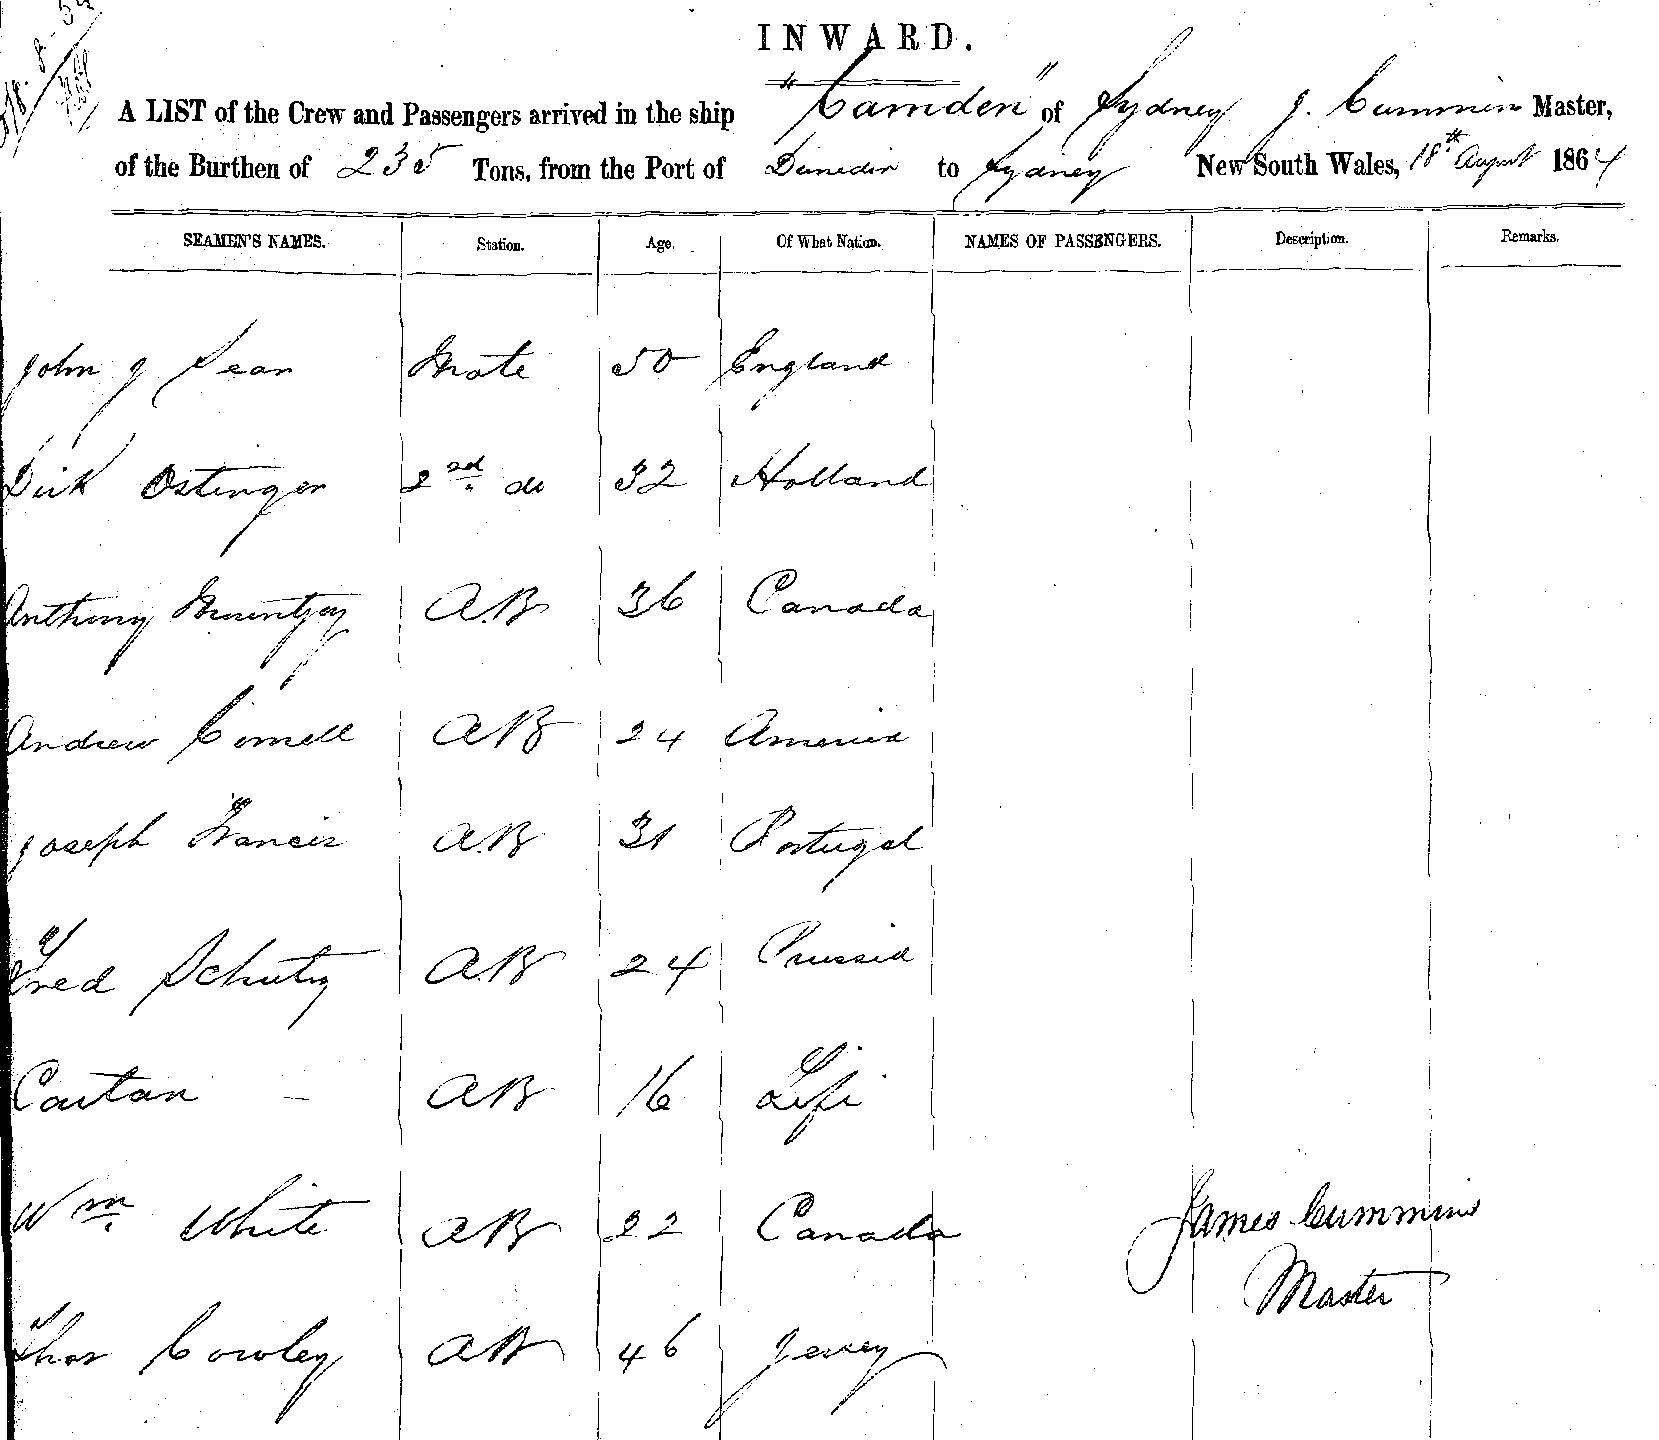 INWARD.
A LIST of the Crew and Passengers arrived in the ship "Camden" of Sydney J. Cummins Master,
of the Burthen of 235 Tons, from the Port of Dunedin to Sydney New South Wales, 18th August 1864
SEAMEN'S NAMES. Station. Age. Of What Nation. NAMES OF PASSENGERS. Description. Remarks.
John J Sean Mate 50 England
Dirk Ostinger 2nd do 32 Holland
Anthony A.B 36 Canada
Andrew Cornell AB 24 America
Joseph Francis A.B 31 Portugal
Fred Schutz A.B 24 Prussia
Cartan - AB 16 Fifi
Wm. White AB 22 Canada
James Cummins
Master
Thos Cowley AB 46 Jersey